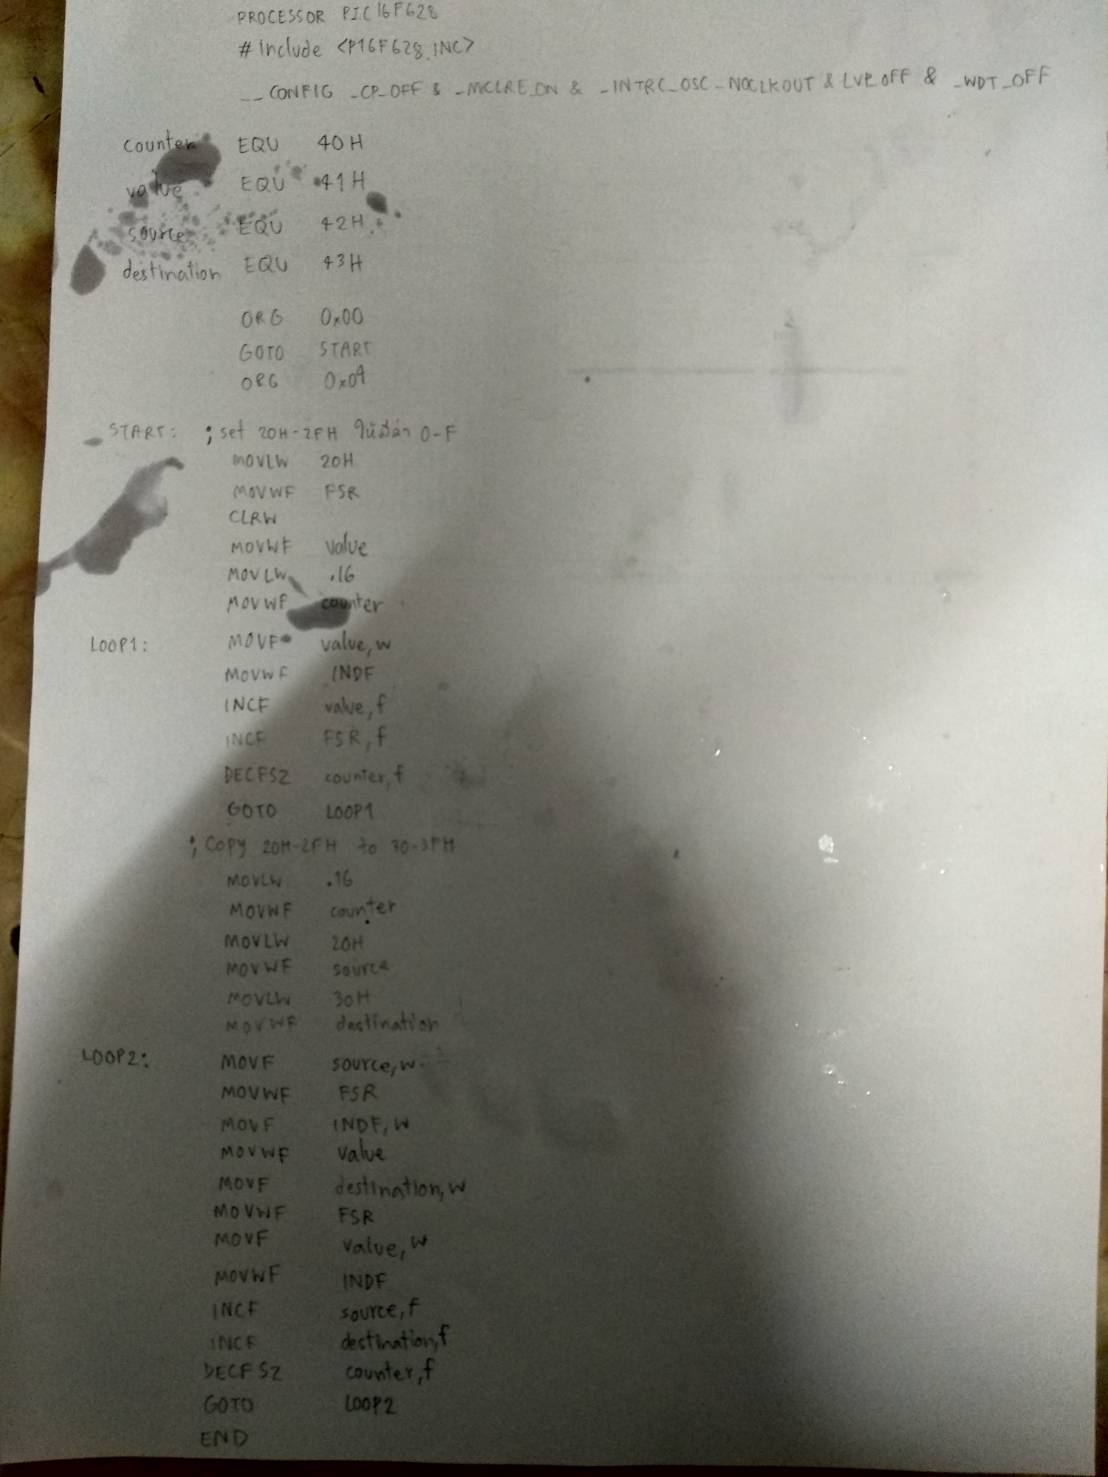 PROCESSOR PIC16F628
#Include <P16F628.INC>
__CONFIG _CP_OFF & _MCLRE_ON & _INTRC_OSC_NOCLKOUT & LVP_OFF & _WDT_OFF
counter EQU 40H
value EQU 41H
source EQU 42H
destination EQU 43H
ORG 0x00
GOTO START
ORG 0x04
START: ;set 20H-2FH ให้มีค่า 0-F
MOVLW 20H
MOVWF FSR
CLRW
MOVWF value
MOVLW .16
MOVWF counter
LOOP1: MOVF value,w
MOVWF INDF
INCF value,f
INCF FSR,f
DECFSZ counter,f
GOTO LOOP1
; Copy 20H-2FH to 30-3FH
MOVLW .16
MOVWF counter
MOVLW 20H
MOVWF source
MOVLW 30H
MOVWF destination
LOOP2: MOVF source,w
MOVWF FSR
MOVF INDF,w
MOVWF value
MOVF destination,w
MOVWF FSR
MOVF value,w
MOVWF INDF
INCF source,f
INCF destination,f
DECFSZ counter,f
GOTO LOOP2
END